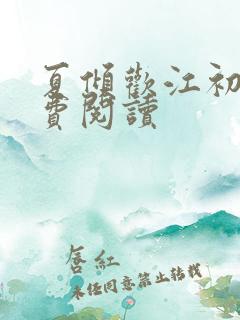 夏傾歡江初
費閱讀
唇紅
未经同意禁止转载